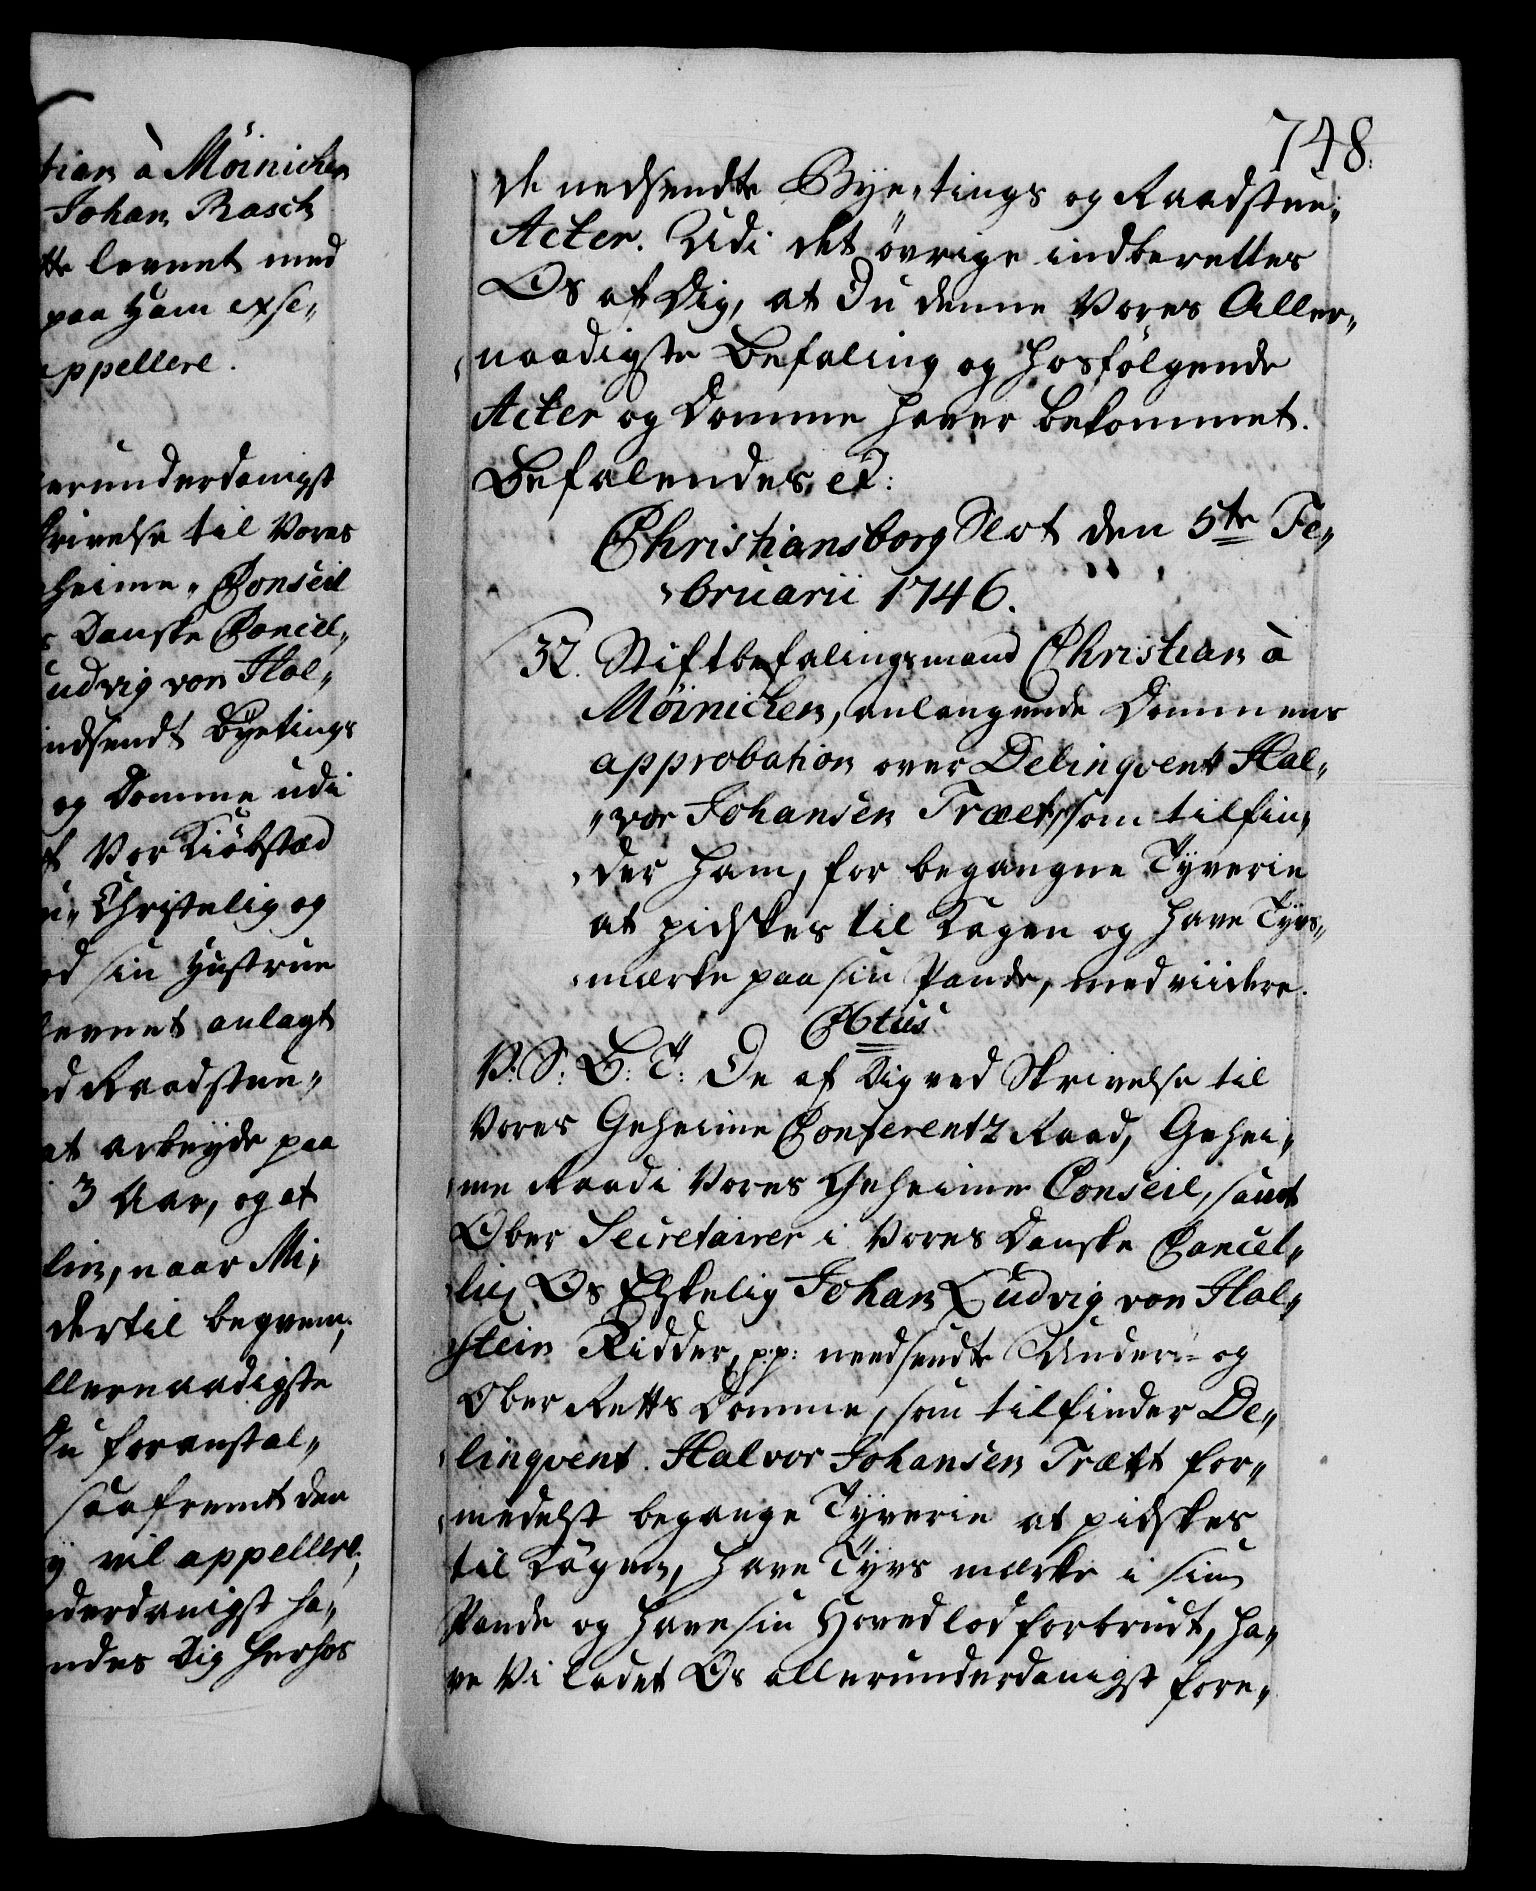 tian à Möinichen
Johan Rasch
levnet med
paa Ham exse¬
appellere.
erunderdanigst
krivelse til Vores
heime¬ Conseil
Danske Cancel¬
udvig von Hol¬
indsendt Byetings
og Domme udi
Vor Kiöbsted
Christelig og
sin Hustrue
levnet anlagt
Raadstue¬
at arbeyde paa
3 Aar, og at
lin, naar Mi¬
dertil beqvem,
llernaadigste
Du foranstal¬
saafremt den
vil appellere,
derdanigst ha¬
ndes Dig herhos
748.
de nedsendte Bye¬tings og Raadstue¬
Acter. Udi det övrige indberettes
Os af Dig, at Du denne Vores Aller¬
naadigste Befaling og hosfölgende
Acter og Domme haver bekommet.
Befalendes et:
Christiansborg Slot den 5te Fe¬
bruarii 1746.
32. Stiftbefalingsmand Christian à
Möinichen, anlangende Dommens
approbation over Delinqvent Hal¬
vor Johansen Træet, som tilfin¬
der ham, for begangne Tyverie
at pidskes til Kagen og have Tyvs¬
mærke paa sin Pande, med viidere.
Chtus
V: S: B: T: De af Dig ved Skrivelse til
Vores Geheime Conferentz Raad, Gehei¬
me Raad i Vores Geheime Conseil, samt
Ober Secretairer i Vores Danske Cancel¬
lie, Os Elskelig Johan Ludvig von Hol¬
stein Ridder, pp: needsendte Under¬ og
Ober Retts Domme, som tilfinder De¬
linqvent. Halvor Johansen Trætt for¬
medelst begange Tyverie at pidskes
til Kagen, have Tyvs mærke i sin
Pande og have sin Hovedlod forbrudt, ha¬
ve Vi ladet Os allerunderdanigst fore¬